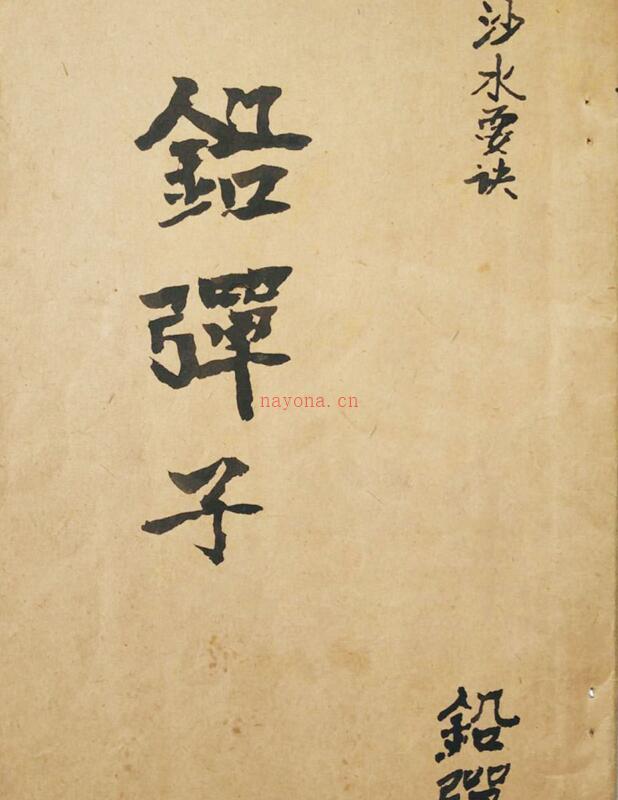 沙水要訣
鉛彈子
鉛彈
nayona.cn